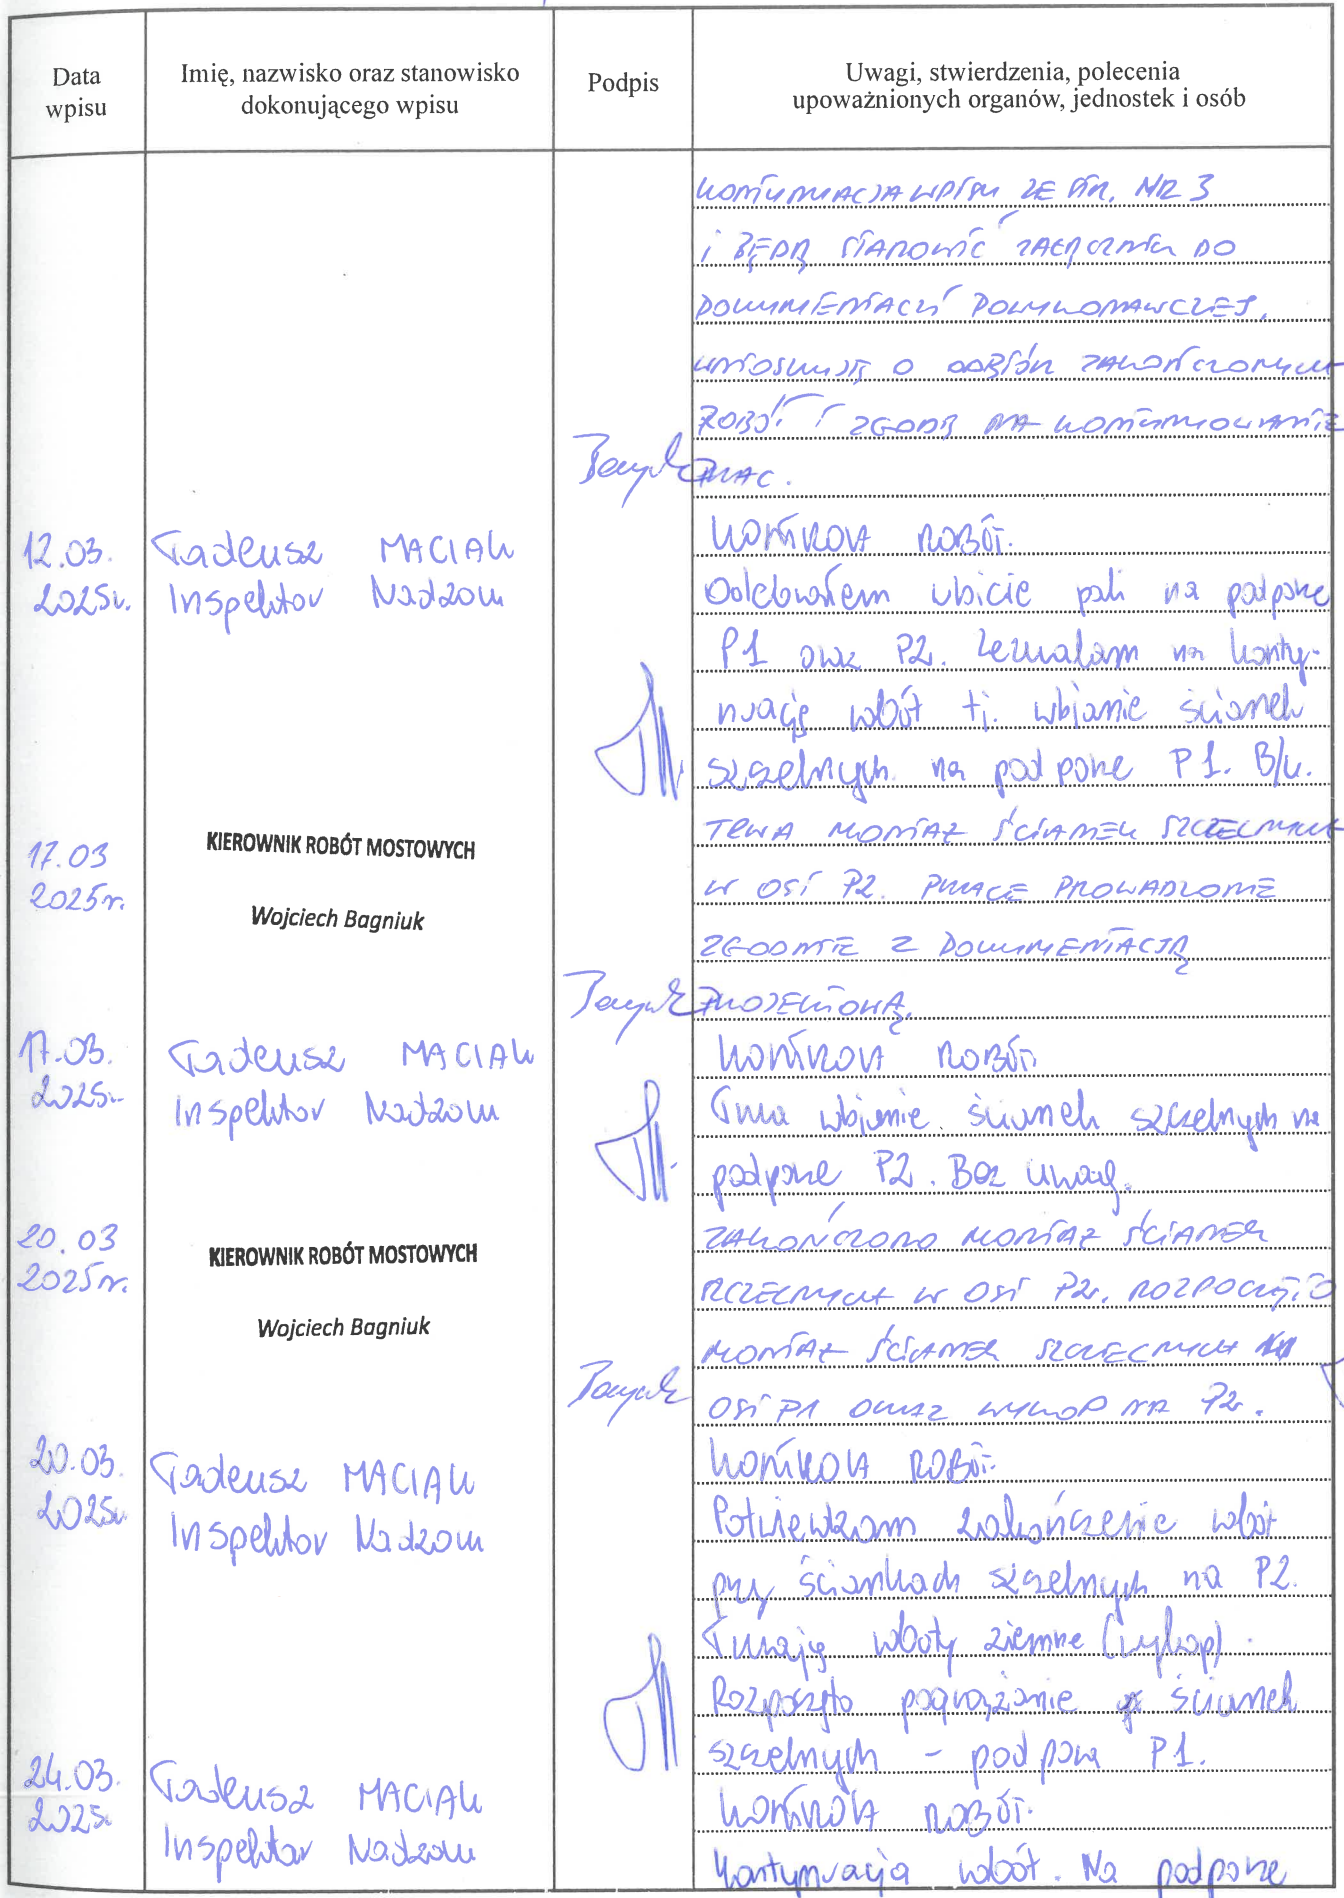 Data wpisu
Imię, nazwisko oraz stanowisko dokonującego wpisu
Podpis
Uwagi, stwierdzenia, polecenia upoważnionych organów, jednostek i osób
KONTYNUACJA WPISU ZE STR. NR 3
I BĘDĄ STANOWIĆ ZAŁĄCZNIK DO
DOKUMENTACJI POWYKONAWCZEJ.
WNIOSKUJĘ O ODBIÓR ZAKOŃCZONYCH
ROBÓT I ZGODĘ NA KONTYNUOWANIE
PRAC.
12.03. 2025r.
Tadeusz MACIAK
Inspektor Nadzoru
KONTROLA ROBÓT.
Odebrałem wbicie pali na podporze
P1 oraz P2. Zezwalam na konty-
nuację robót tj. wbijanie ścianek
szczelnych na podporze P1. B/u.
17.03 2025r.
KIEROWNIK ROBÓT MOSTOWYCH
Wojciech Bagniuk
TRWA MONTAŻ ŚCIANEK SZCZELNYCH
W OSI P2. PRACE PROWADZONE
ZGODNIE Z DOKUMENTACJĄ
PROJEKTOWĄ.
17.03. 2025r.
Tadeusz MACIAK
Inspektor Nadzoru
KONTROLA ROBÓT.
Trwa wbijanie ścianek szczelnych na
podporze P2. Bez uwag.
20.03 2025r.
KIEROWNIK ROBÓT MOSTOWYCH
Wojciech Bagniuk
ZAKOŃCZONO MONTAŻ ŚCIANEK
SZCZELNYCH W OSI P2. ROZPOCZĘTO
MONTAŻ ŚCIANEK SZCZELNYCH
OSI P1 ORAZ WYKOP NA P2.
20.03. 2025r.
Tadeusz MACIAK
Inspektor Nadzoru
KONTROLA ROBÓT.
Potwierdzam zakończenie robót
przy ściankach szczelnych na P2.
Trwają roboty ziemne (wykop).
Rozpoczęto pogrążanie ścianek
szczelnych - podpora P1.
24.03. 2025r
Tadeusz MACIAK
Inspektor Nadzoru
KONTROLA ROBÓT.
Kontynuacja robót. Na podporze